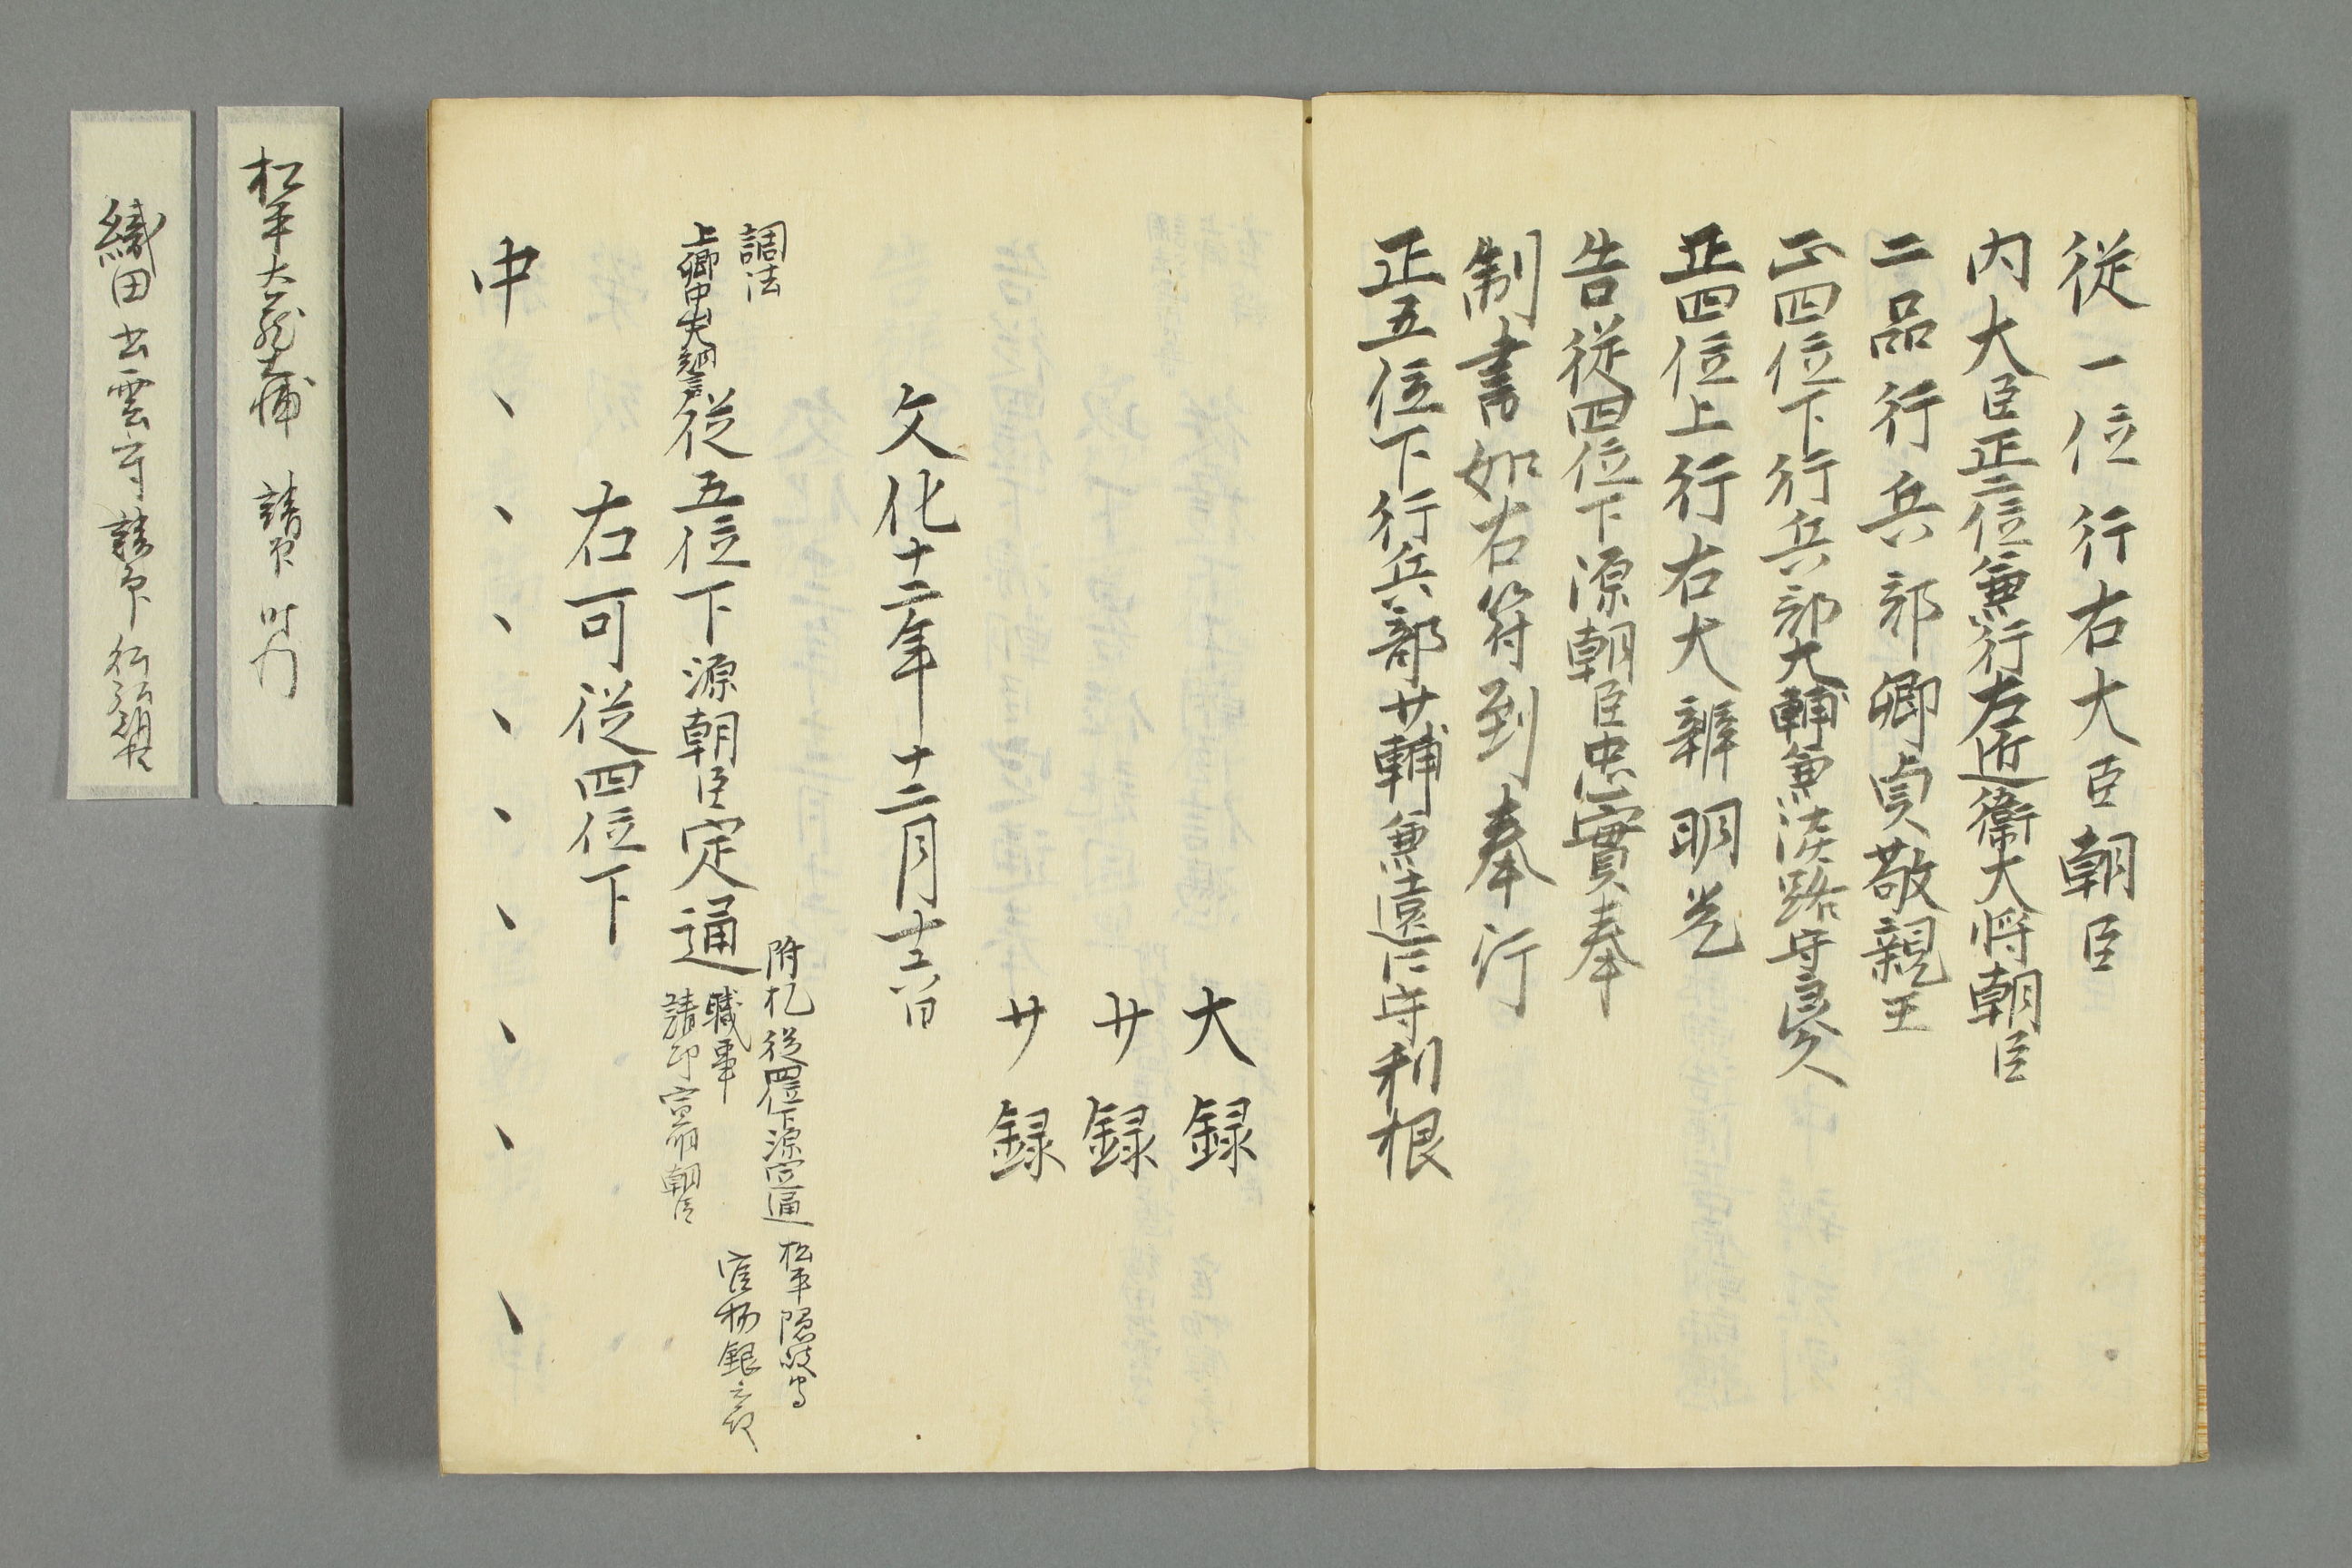 従一位行右大臣朝臣
内大臣正二位兼行左近衛大将朝臣
二品行兵部卿貞敬親王
正四位下行兵部大輔兼淡路守良久
正四位上行右大辨明光
告従四位下源朝臣忠實奉
制書如右符到奉行
正五位下行兵部少輔兼遠江守利根
大録
少録
少録
文化十二年十二月十六日
調法
上卿中山大納言
従五位下源朝臣定通
附札 従四位下源定通 松平隠岐守
職事
請印
朝臣
官物銀
右可従四位下
中、、、、、、、、、
松平大蔵大輔 請印
織田出雲守 請印